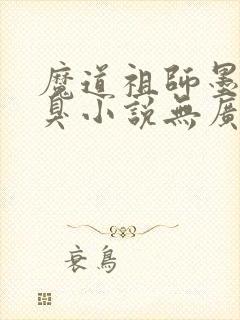 魔道祖師墨
臭小說無廣
衰鳥